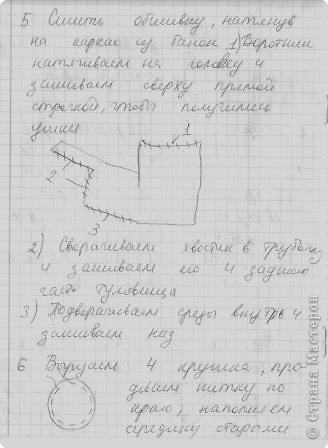 5 Сшить обшивку, натянув
на каркас из банок 1) Воротник
натягиваем на головку и
зашиваем сверху прямой
строчкой, чтобы получились
ушки
1
2
3
2) Сворачиваем хвостик в трубочку
и зашиваем его и заднюю
часть туловища
3) Подворачиваем срезы внутрь и
зашиваем низ
6 Вырезаем 4 кружка, про-
деваем нитку по
краю, наполняем
середину старыми
© Страна Мастеров